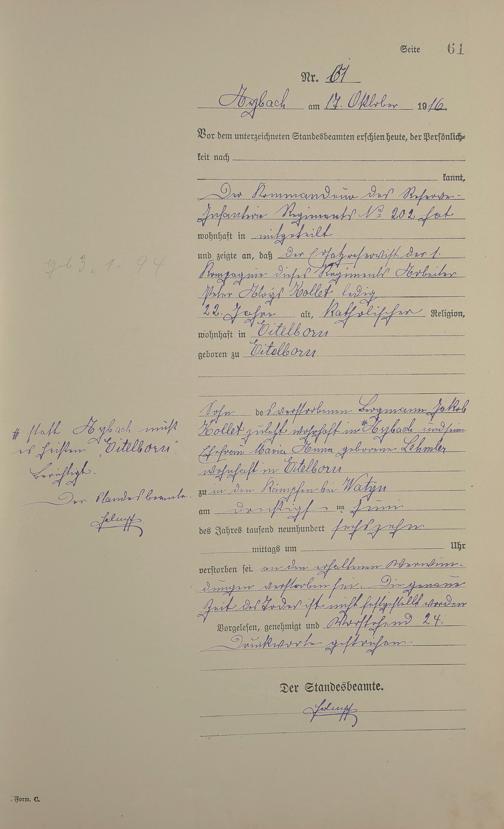 Seite 61
Nr. 61
Arzbach am 17. Oktober 1916
Vor dem unterzeichneten Standesbeamten erschien heute, der Persönlich-
keit nach
kannt,
Der Kommandeur des Reserve-
Infanterie Regiments No 202 hat
wohnhaft in mitgeteilt
und zeigte an, daß der Ersatzreservist der 1.
Kompagnie dieses Regiments Arbeiter
Peter Aloys Kollet, ledig
22 Jahre alt, Katholischer Religion,
wohnhaft in Eitelborn
geboren zu Eitelborn
geb 3. 1. 94
Sohn des verstorbenen Bergmann Jakob
Kollet zuletzt wohnhaft in # Arzbach und
Ehefrau Maria Anna geborene
wohnhaft in Eitelborn
# statt Arzbach muß
es heißen "Eitelborn"
berichtigt.
Der Standesbeamte.
zu in den Kämpfen bei
am im Juni
des Jahres tausend neunhundert sechszehn
mittags um Uhr
verstorben sei. an den erhaltenen Verwun-
dungen verstorben sei. Die genaue
Zeit des Todes ist nicht festgestellt worden
Vorgelesen, genehmigt und Vorstehend 24.
Druckworte gestrichen.
Der Standesbeamte.
Form. C.